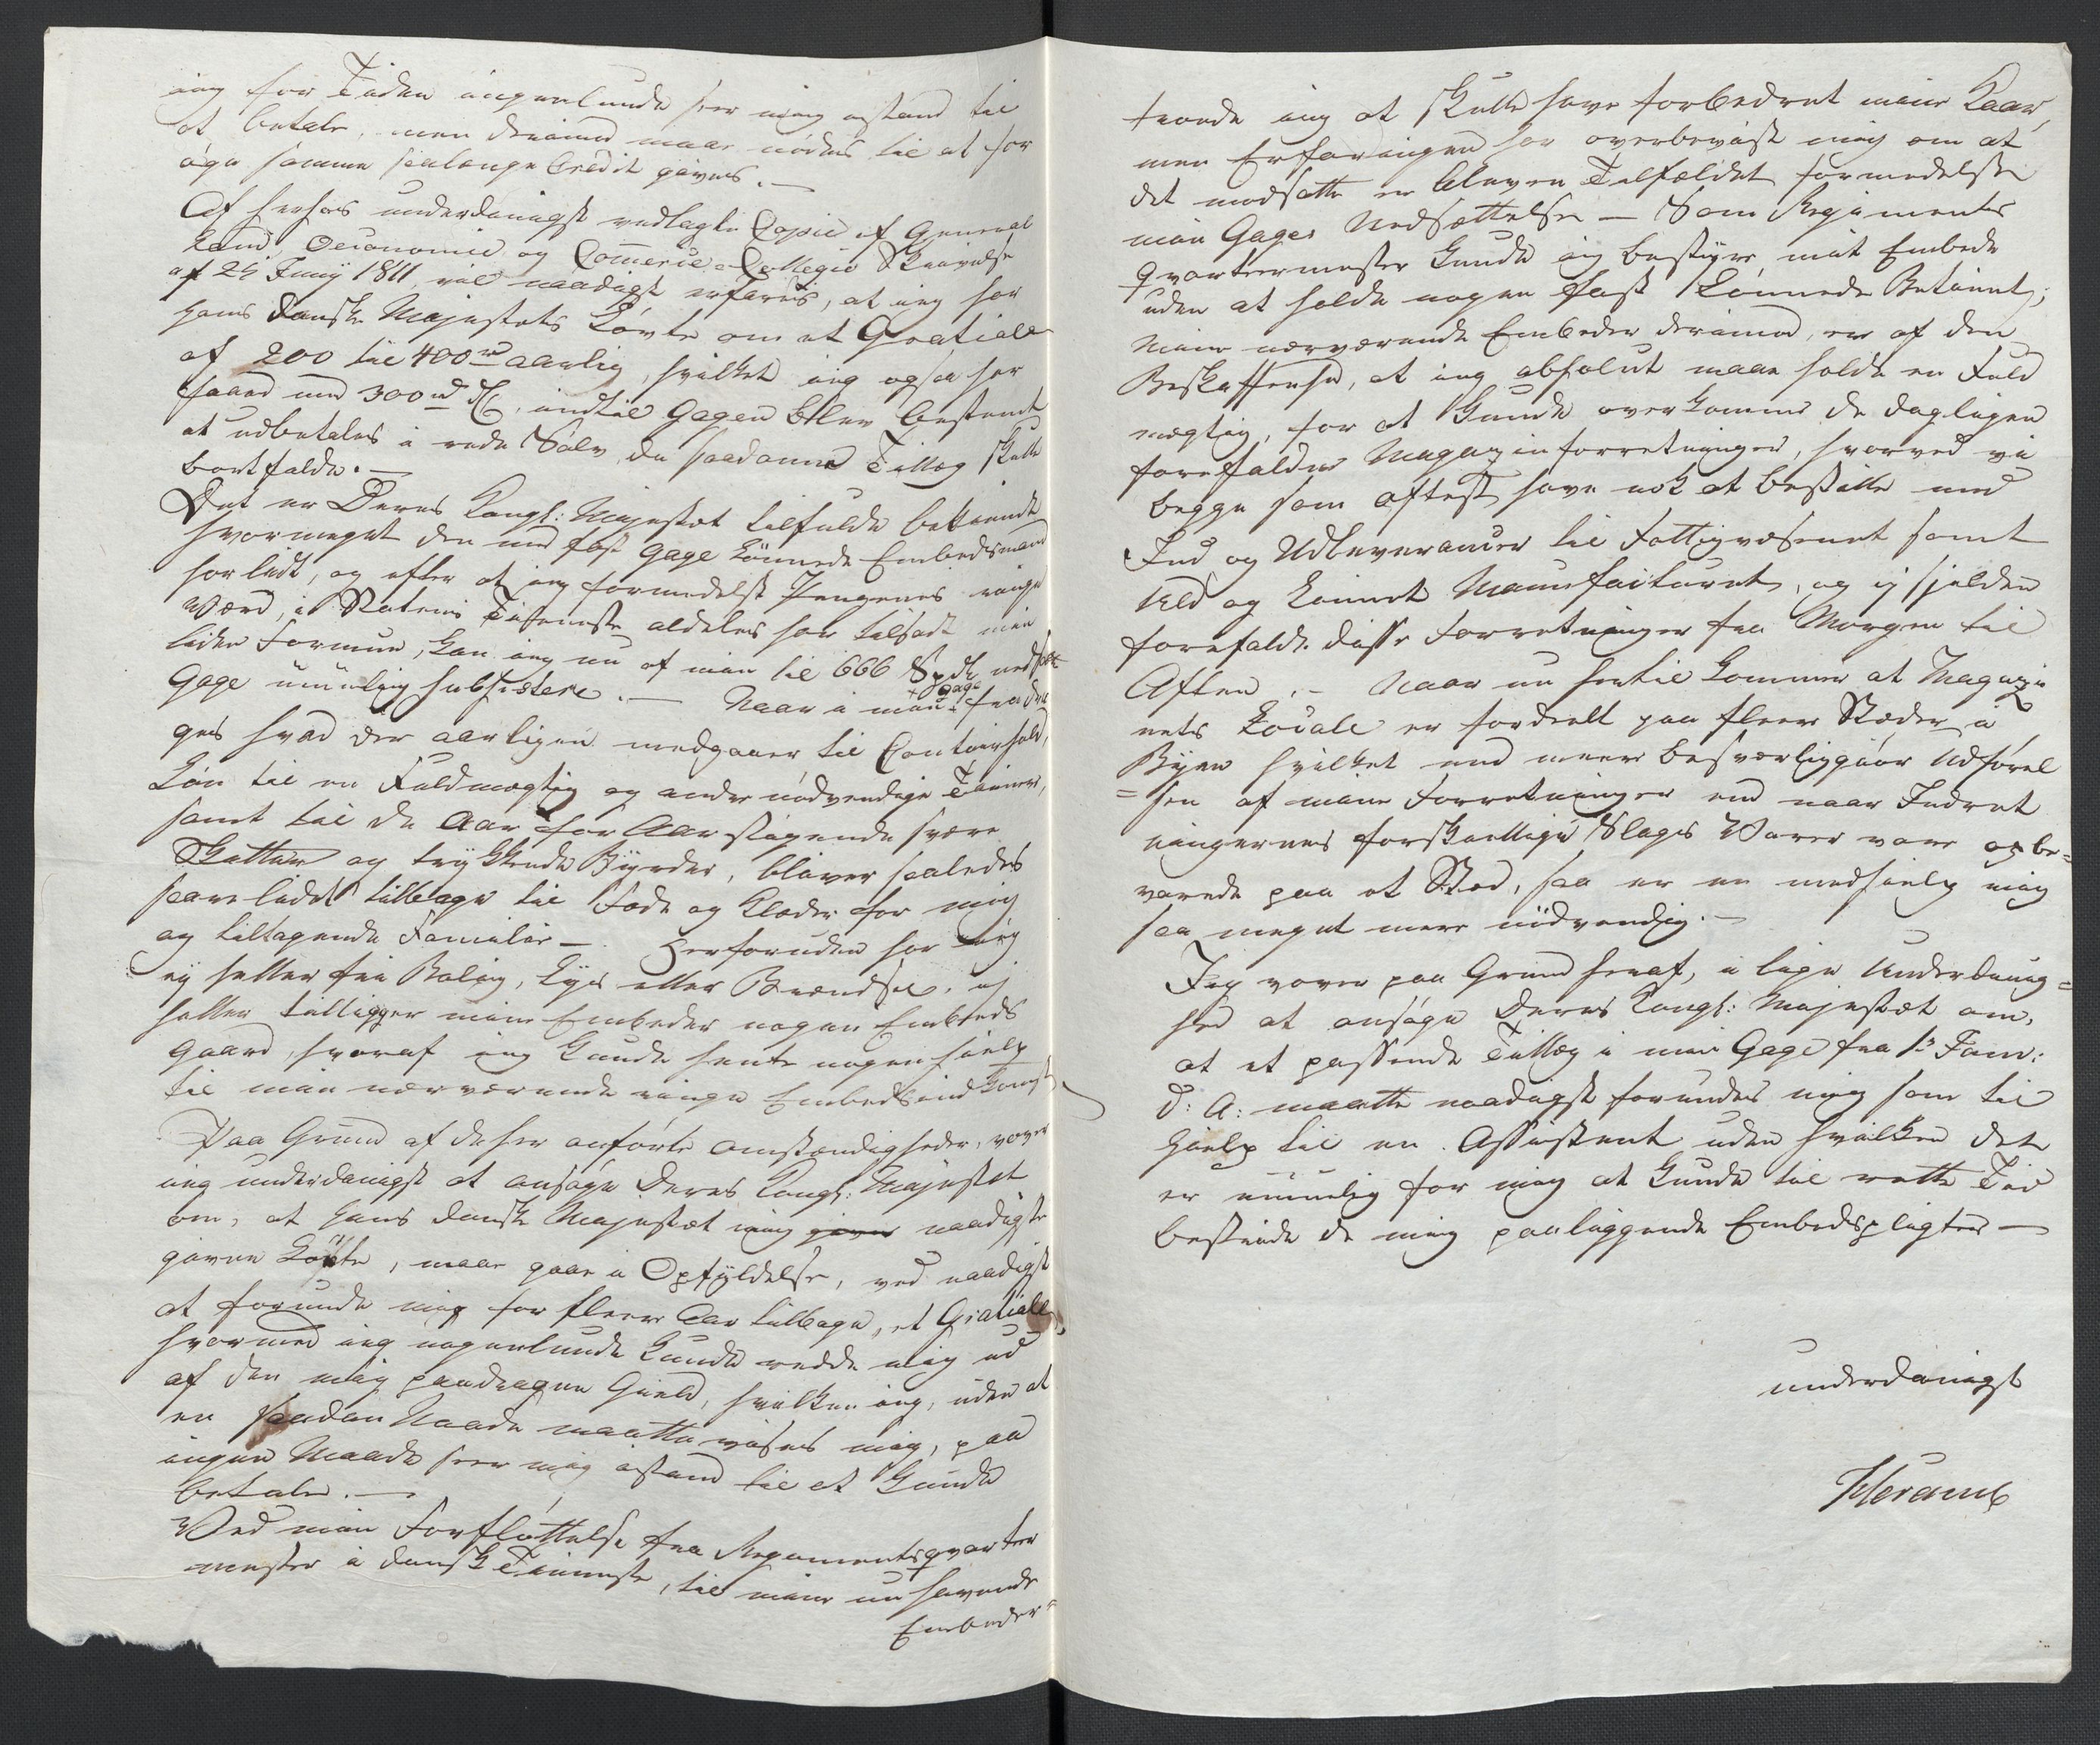 jeg for Tiden ingenlunde seer mig istand til
at betale, men derimod maae nødes til at for
øge samme saalænge Credit gives. —
Af herhos underdanigst vedlagte Copie af General
Land Oeconomie og Commerce-Collegie Skrivelse
af 25 Juny 1811, vil naadigst erfares, at jeg har
Hans Danske Majestæts Løvte om et Gratiale
af 200 til 400 rd aarlig, hvilket jeg ogsaa har
faaed med 300 rd DC, indtil Gagen blev bestemt
at udbetales i rede Sølv, da saadanne Tillæg skulle
bortfalde. —
Det er Deres Kongl: Majestæt tilfulde bekiendt
hvormeget den med fast Gage lønnede Embedsmand
har lidt, og efter at jeg formedelst Pengenes ringe
Værd, i Statens Tieneste aldeles har tilsadt min
liden Formue, kan jeg nu af min til 666 Spd nedsatte
Gage umulig subsistere. — Naar i min + Gage fradra
ges hvad der aarligen medgaaer til Contoirhold,
Løn til en Fuldmægtig og andre nødvendige Tienere,
samt til de Aar for Aar stigende svære
Skatter og trykkende Byrder, bliver saaledes
saare lidet tilbage til Føde og Klæder for mig
og tiltagende Familie —. Herforuden har jeg
ej heller frie Bolig, Lys eller Brændsel. ej
heller tilligger mine Embeder nogen Embeds
Gaard, hvoraf jeg kunde hente nogen hielp
til min nærværende ringe Embedsindkomst
Paa Grund af de her anførte omstændigheder, vover
jeg underdanigst at ansøge Deres Kongl: Majestæt
om, at Hans Danske Majestæt mig given naadigste
givne Løvte, maae gaae i Opfyldelse, ved naadigst
at forunde mig for fleere Aar tilbage, et Gratiale
hvormed jeg nogenlunde kunde redde mig ud
af den mig paadragne Gield, hvilken jeg, uden at
en saadan Naade maatte vises mig, paa
ingen Maade seer mig istand til at kunde
betale. —
Ved min Forfløttelse fra Regimentsqvarteer
mester i dansk Tieneste, til mine nu havende
Embeder =
troede jeg at skulle have forbedret mine Kaar,
men Erfaringen har overbeviist mig om at
det modsatte er bleven Tilfældet formedelst
min Gages Nedsættelse — Som Regiments
Qvarteermester kunde jeg bestyre mit Embede
uden at holde nogen fast lønnede Betient;
Mine nærværende Embeder derimod, er af den
Beskaffenhed, at jeg absolut maae holde en Fuld
mægtig, for at kunde overkomme de dagligen
forefaldne Magazinforretninger, hvorved vi
begge som oftest have nok at bestille med
Ind og Udleverancer til Fattigvæsenet samt
Uld og Linnet Manufacturet, og ej sjelden
forefalde disse Forretninger fra Morgen til
Aften. — Naar nu hertil kommer at Magazi
nets Locale er fordeelt paa fleere Stæder i
Byen hvilket end meere besværliggiør Udførel
= sen af mine Forretninger end naar Indret
ningernes forskiellige Slags Varer vare opbe =
varede paa et Stæd, saa er en medhielp mig
saa meget mere nødvendig. —
Jeg vover paa Grund heraf, i lige Underdanig =
hed at ansøge Deres Kongl: Majestæt om,
at et passende Tillæg i min Gage fra 1s Janu:
d: A: maatte naadigst forundes mig som til
Hielp til en Assistent uden hvilken det
er umulig for mig at kunde til rette Tid
bestride de mig paaliggende Embedspligter —
underdanigst